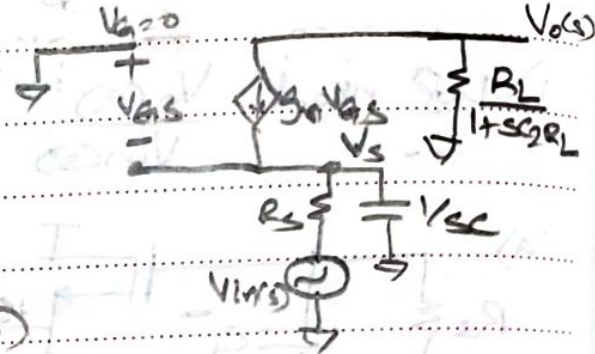 VG=0
Vo(s)
+
VGS
gmVGS
RL
1+SC2RL
-
Vs
Rs
1/SC
Vin(s)